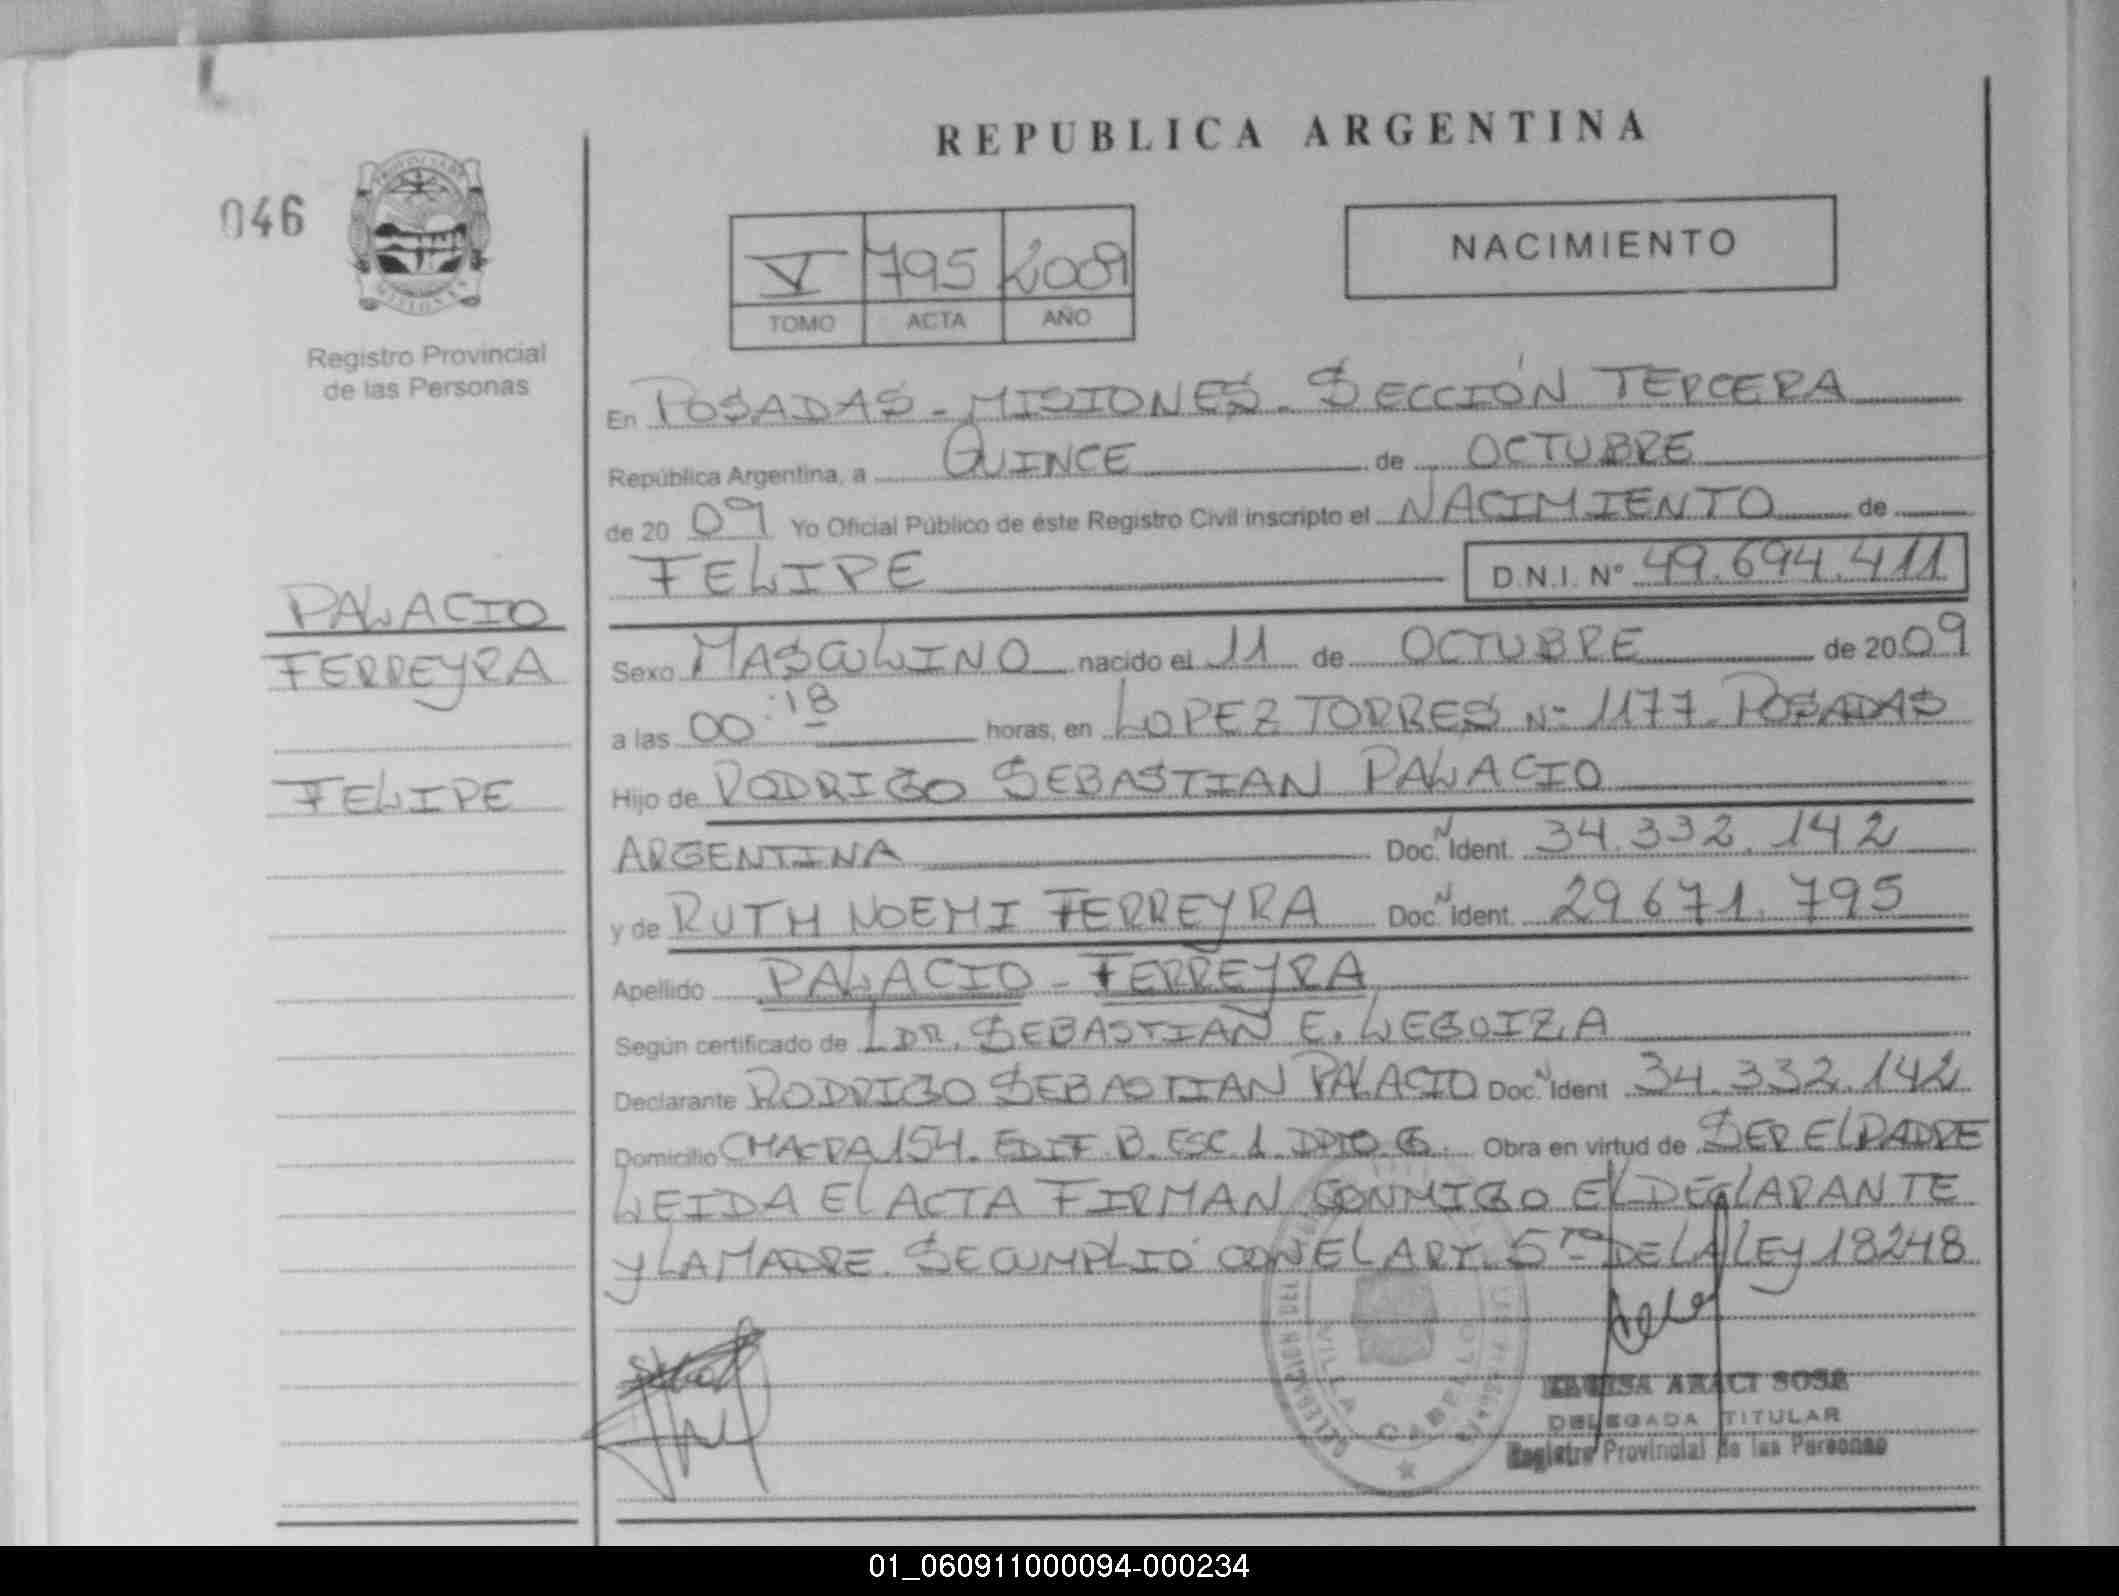 REPUBLICA ARGENTINA
046
NACIMIENTO
V 795 2009
TOMO ACTA AÑO
Registro Provincial
de las Personas
En POSADAS - MISIONES - SECCIÓN TERCERA
República Argentina, a QUINCE de OCTUBRE
de 20 09 Yo Oficial Público de éste Registro Civil inscripto el NACIMIENTO de
FELIPE D.N.I. Nº 49.694.411
PALACIO
FERREYRA
FELIPE
Sexo MASCULINO nacido el 11 de OCTUBRE de 2009
a las 00:18 horas, en LOPEZ TORRES Nº 1177 - POSADAS
Hijo de RODRIGO SEBASTIAN PALACIO
ARGENTINA Doc. N Ident. 34.332.142
y de RUTH NOEMI FERREYRA Doc. N Ident. 29671.795
Apellido PALACIO - FERREYRA
Según certificado de LDR. SEBASTIAN E. LEGUIZA
Declarante RODRIGO SEBASTIAN PALACIO Doc. N Ident 34.332.142
Domicilio CHACRA 154. EDIF B. ESC 1 DPTO G. Obra en virtud de SER EL PADRE
LEIDA EL ACTA FIRMAN CONMIGO EL DECLARANTE
Y LA MADRE. SE CUMPLIÓ CON EL ART. 5to DE LA LEY 18248
VILLA CABELLO
ARACI SOSA
DELEGADA TITULAR
Registro Provincial de las Personas
01_060911000094-000234